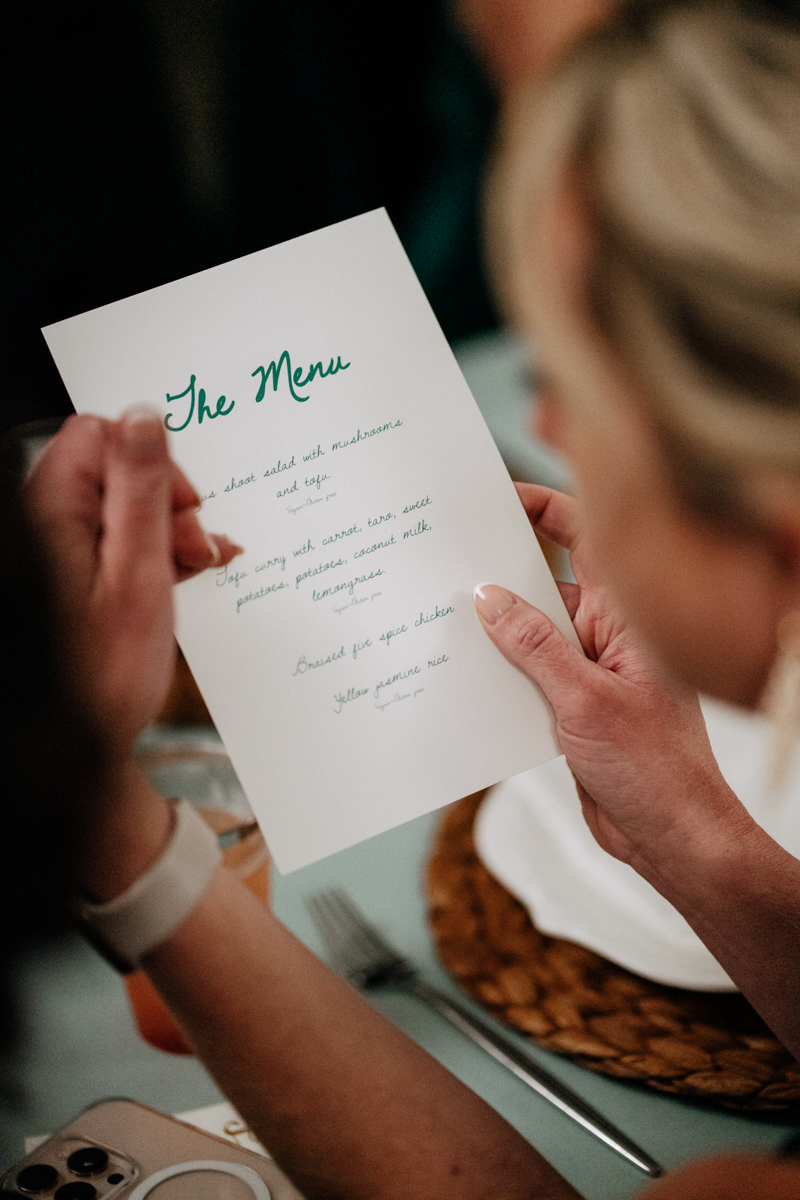 The Menu
shoot salad with mushrooms
and tofu.
Vegan-Gluten free
Tofu curry with carrot, taro, sweet
potatoes, potatoes, coconut milk,
lemongrass.
Vegan-Gluten free
Braised five spice chicken
Yellow jasmine rice.
Vegan-Gluten free